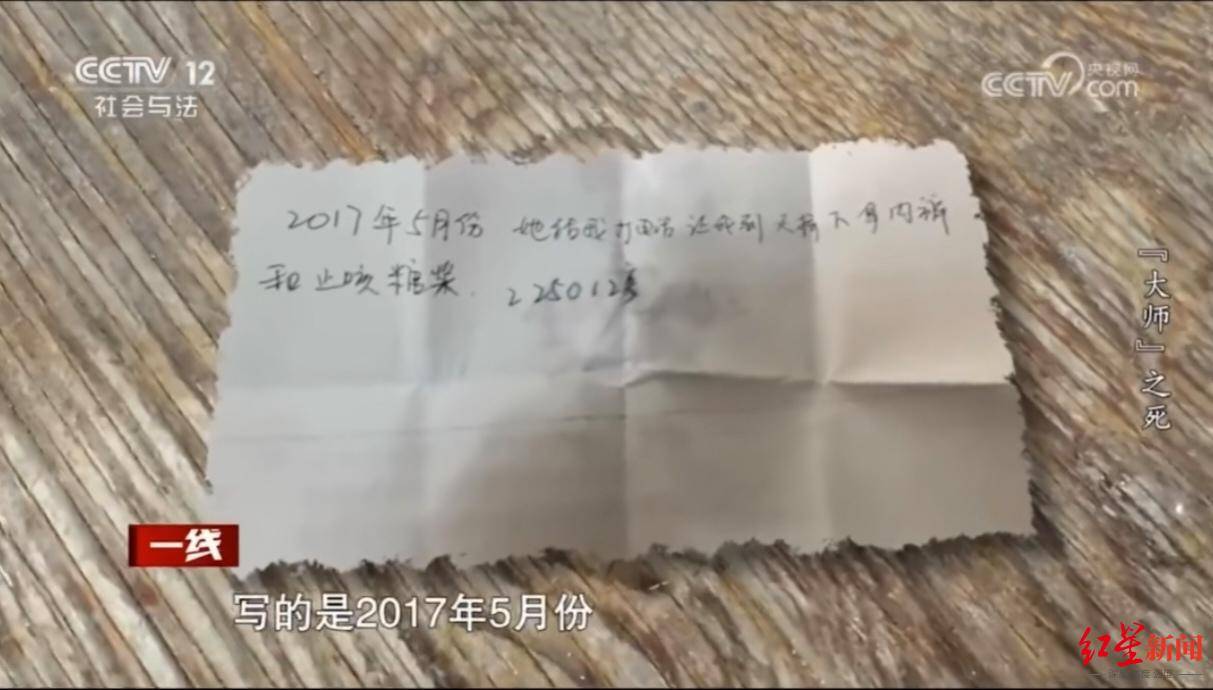 CCTV 12
社会与法
央视网
CCTV com
2017年5月份 她给我打电话 让我到天桥下拿内裤
和止咳糖浆.
『大师』之死
一线
写的是2017年5月份
红星新闻